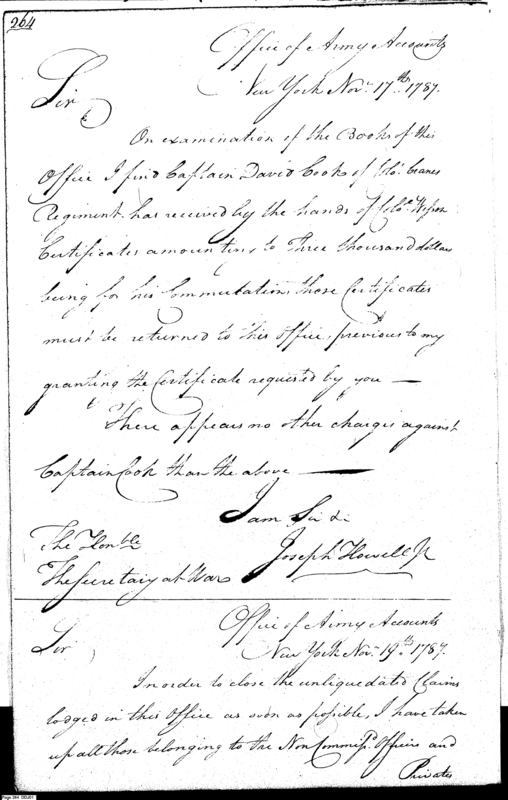 264
Office of Army Accounts
New York Novr. 17th. 1787.
Sir
On examination of the Books of this
Office I find Captain David Cook of Colo. Cranes
Regiment has received by the hands of Colo. Wesson
Certificates amounting to Three thousand dollars
being for his Commutation, these Certificates
must be returned to this Office, previous to my
granting the Certificate requested by you —
There appears no other charges against
Captain Cook than the above —
I am Sir &
The Honble
Joseph Howell Jr
The Secretary at War
Office of Army Accounts
New York Novr. 19th. 1787.
Sir
In order to close the unliquedated Claims
lodged in this Office as soon as possible, I have taken
up all those belonging to the Non Commissd. Officers and
Privates
Page 264 DDJ01